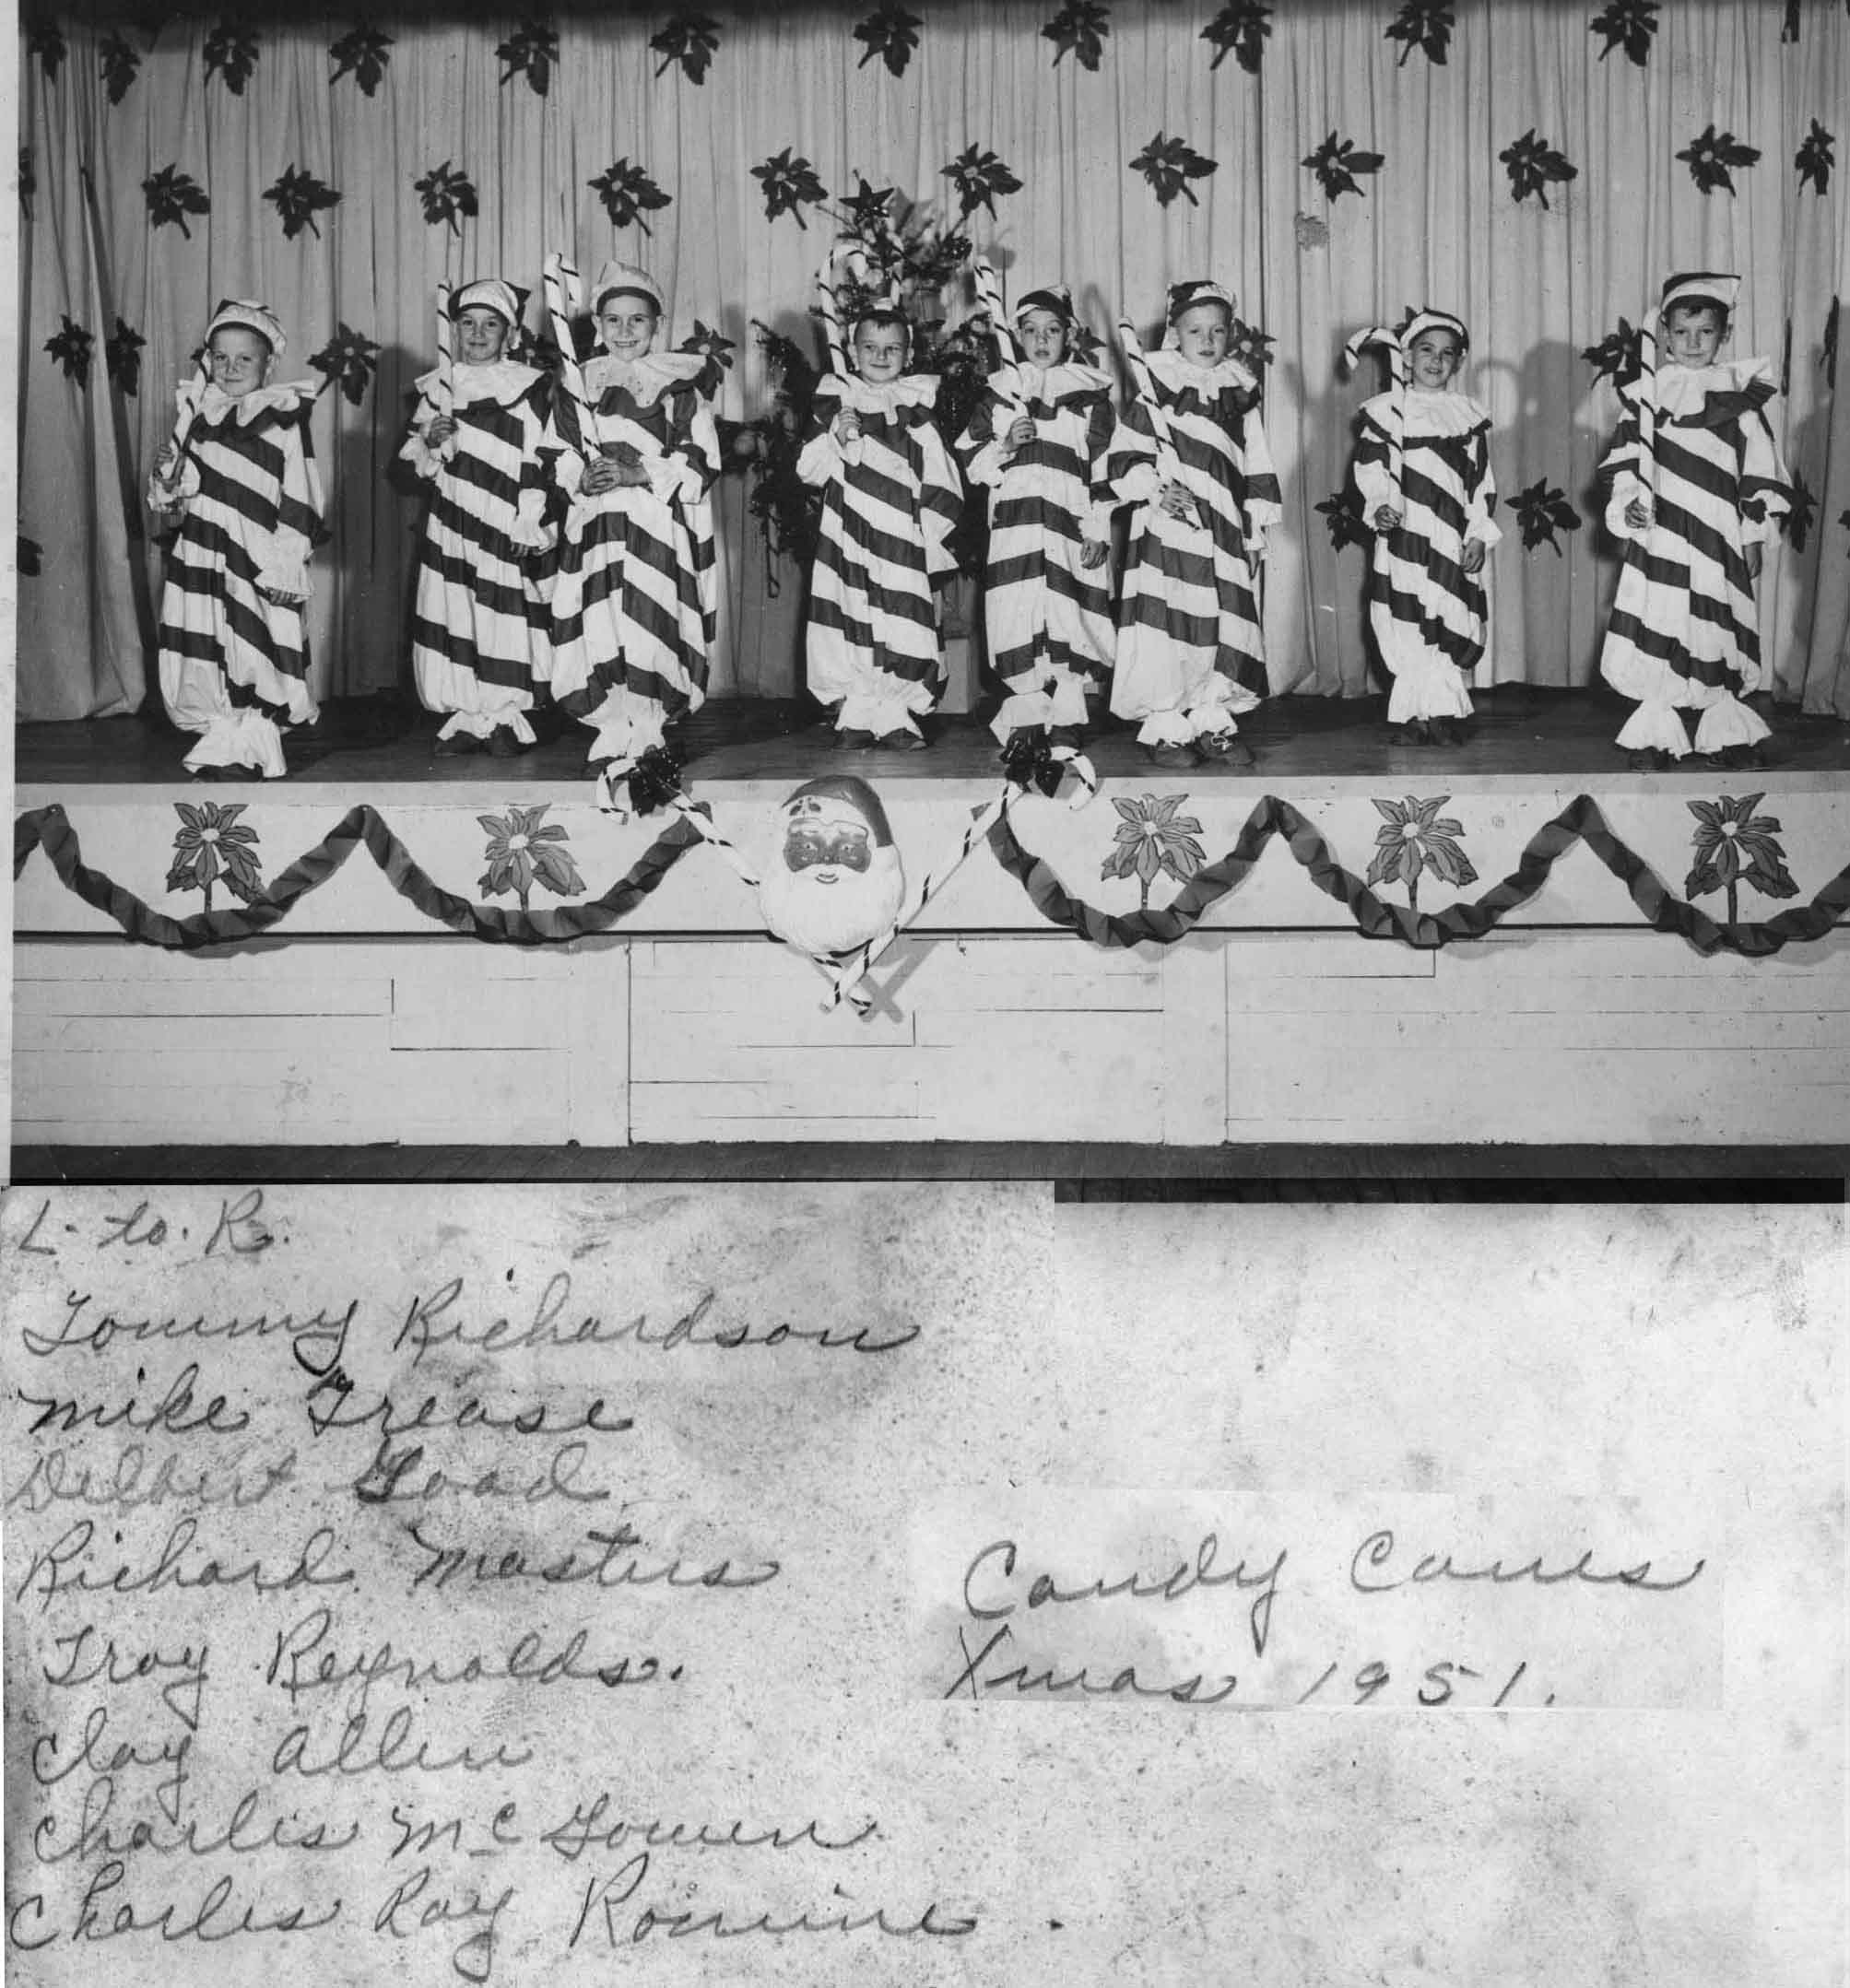 L. to. R.
Tommy Richardson
Mike Trease
Delbert Goad
Richard Masters
Troy Reynolds.
Clay Allen
Charles McGowen
Charles Ray Romine.
Candy Canes
Xmas 1951.